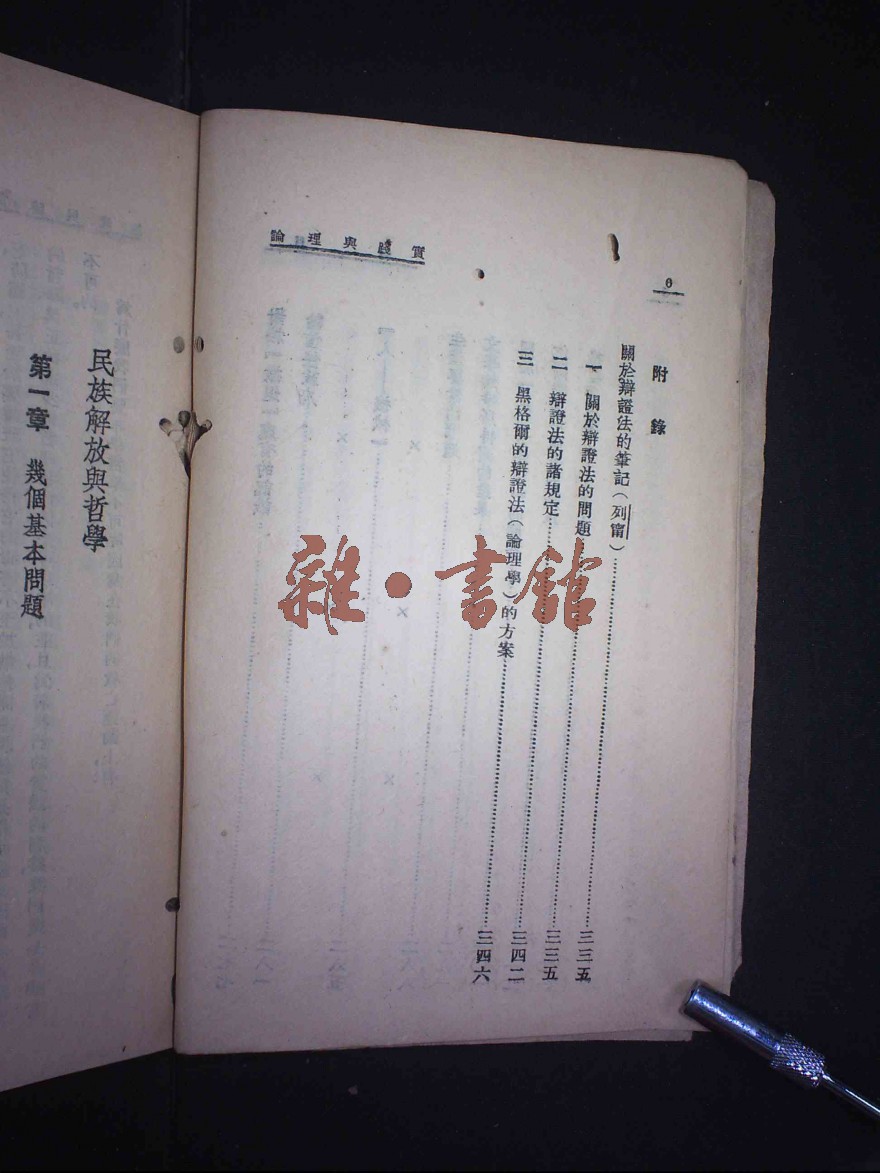 實踐與理論
6
附錄
關於辯證法的筆記(列甯)……三三五
一 關於辯證法的問題……三三五
二 辯證法的諸規定……三四二
三 黑格爾的辯證法(論理學)的方案……三四六
民族解放與哲學
第一章 幾個基本問題
雜·書館